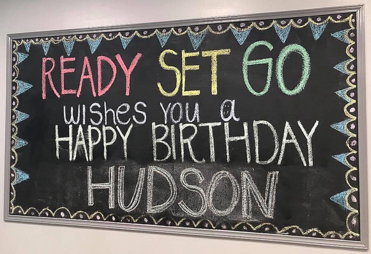 READY SET GO
wishes you a
HAPPY BIRTHDAY
HUDSON